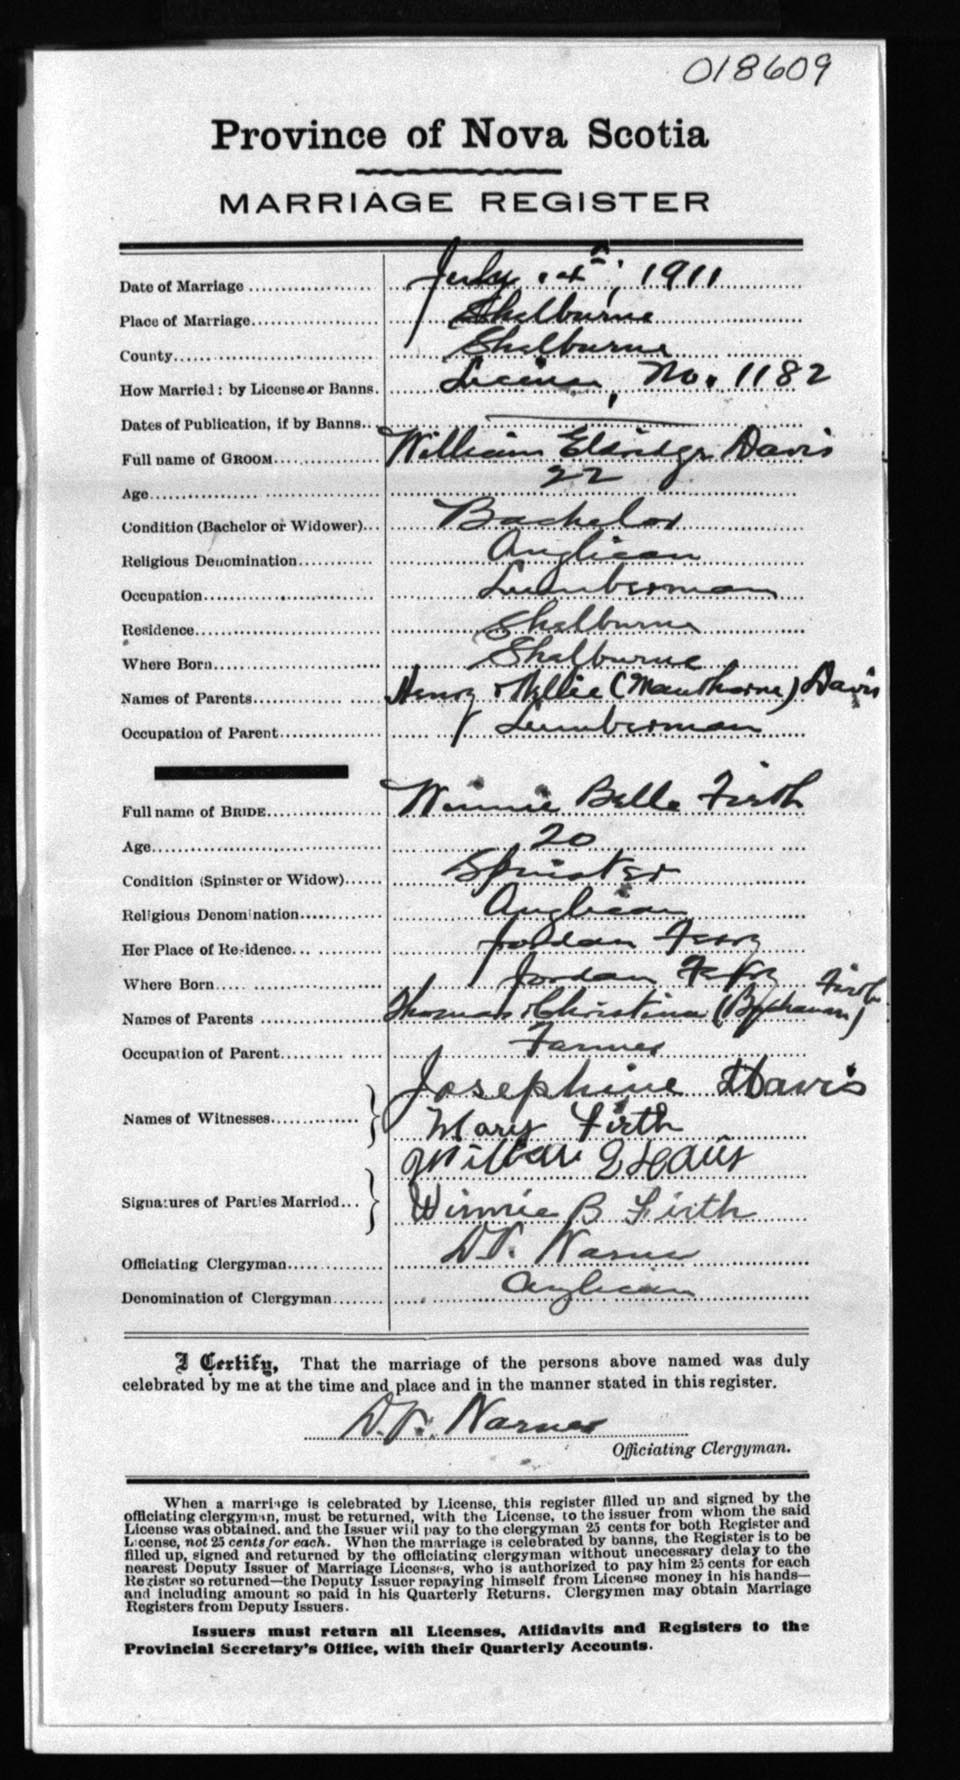 018609
Province of Nova Scotia
MARRIAGE REGISTER
Date of Marriage July 4th, 1911
Place of Marriage Shelburne
County Shelburne
How Married: by License or Banns. License, No. 1182
Dates of Publication, if by Banns
Full name of GROOM William Eldridge Davis
Age 22
Condition (Bachelor or Widower) Bachelor
Religious Denomination Anglican
Occupation Lumberman
Residence Shelburne
Where Born Shelburne
Names of Parents Henry & Nellie (Hawthorne) Davis
Occupation of Parent Lumberman
Full name of BRIDE Winnie Belle Firth
Age 20
Condition (Spinster or Widow) Spinster
Religious Denomination Anglican
Her Place of Residence Jordan Ferry
Where Born Jordan Ferry
Names of Parents Thomas & Christina (Buchanan) Firth
Occupation of Parent Farmer
Names of Witnesses Josephine Davis
Mary Firth
Signatures of Parties Married William E Davis
Winnie B Firth
Officiating Clergyman D.V. Warner
Denomination of Clergyman Anglican
I Certify, That the marriage of the persons above named was duly
celebrated by me at the time and place and in the manner stated in this register.
D.V. Warner
Officiating Clergyman.
When a marriage is celebrated by License, this register filled up and signed by the
officiating clergyman, must be returned, with the License, to the issuer from whom the said
License was obtained, and the Issuer will pay to the clergyman 25 cents for both Register and
License, not 25 cents for each. When the marriage is celebrated by banns, the Register is to be
filled up, signed and returned by the officiating clergyman without unecessary delay to the
nearest Deputy Issuer of Marriage Licenses, who is authorized to pay him 25 cents for each
Register so returned—the Deputy Issuer repaying himself from License money in his hands—
and including amount so paid in his Quarterly Returns. Clergymen may obtain Marriage
Registers from Deputy Issuers.
Issuers must return all Licenses, Affidavits and Registers to the
Provincial Secretary's Office, with their Quarterly Accounts.